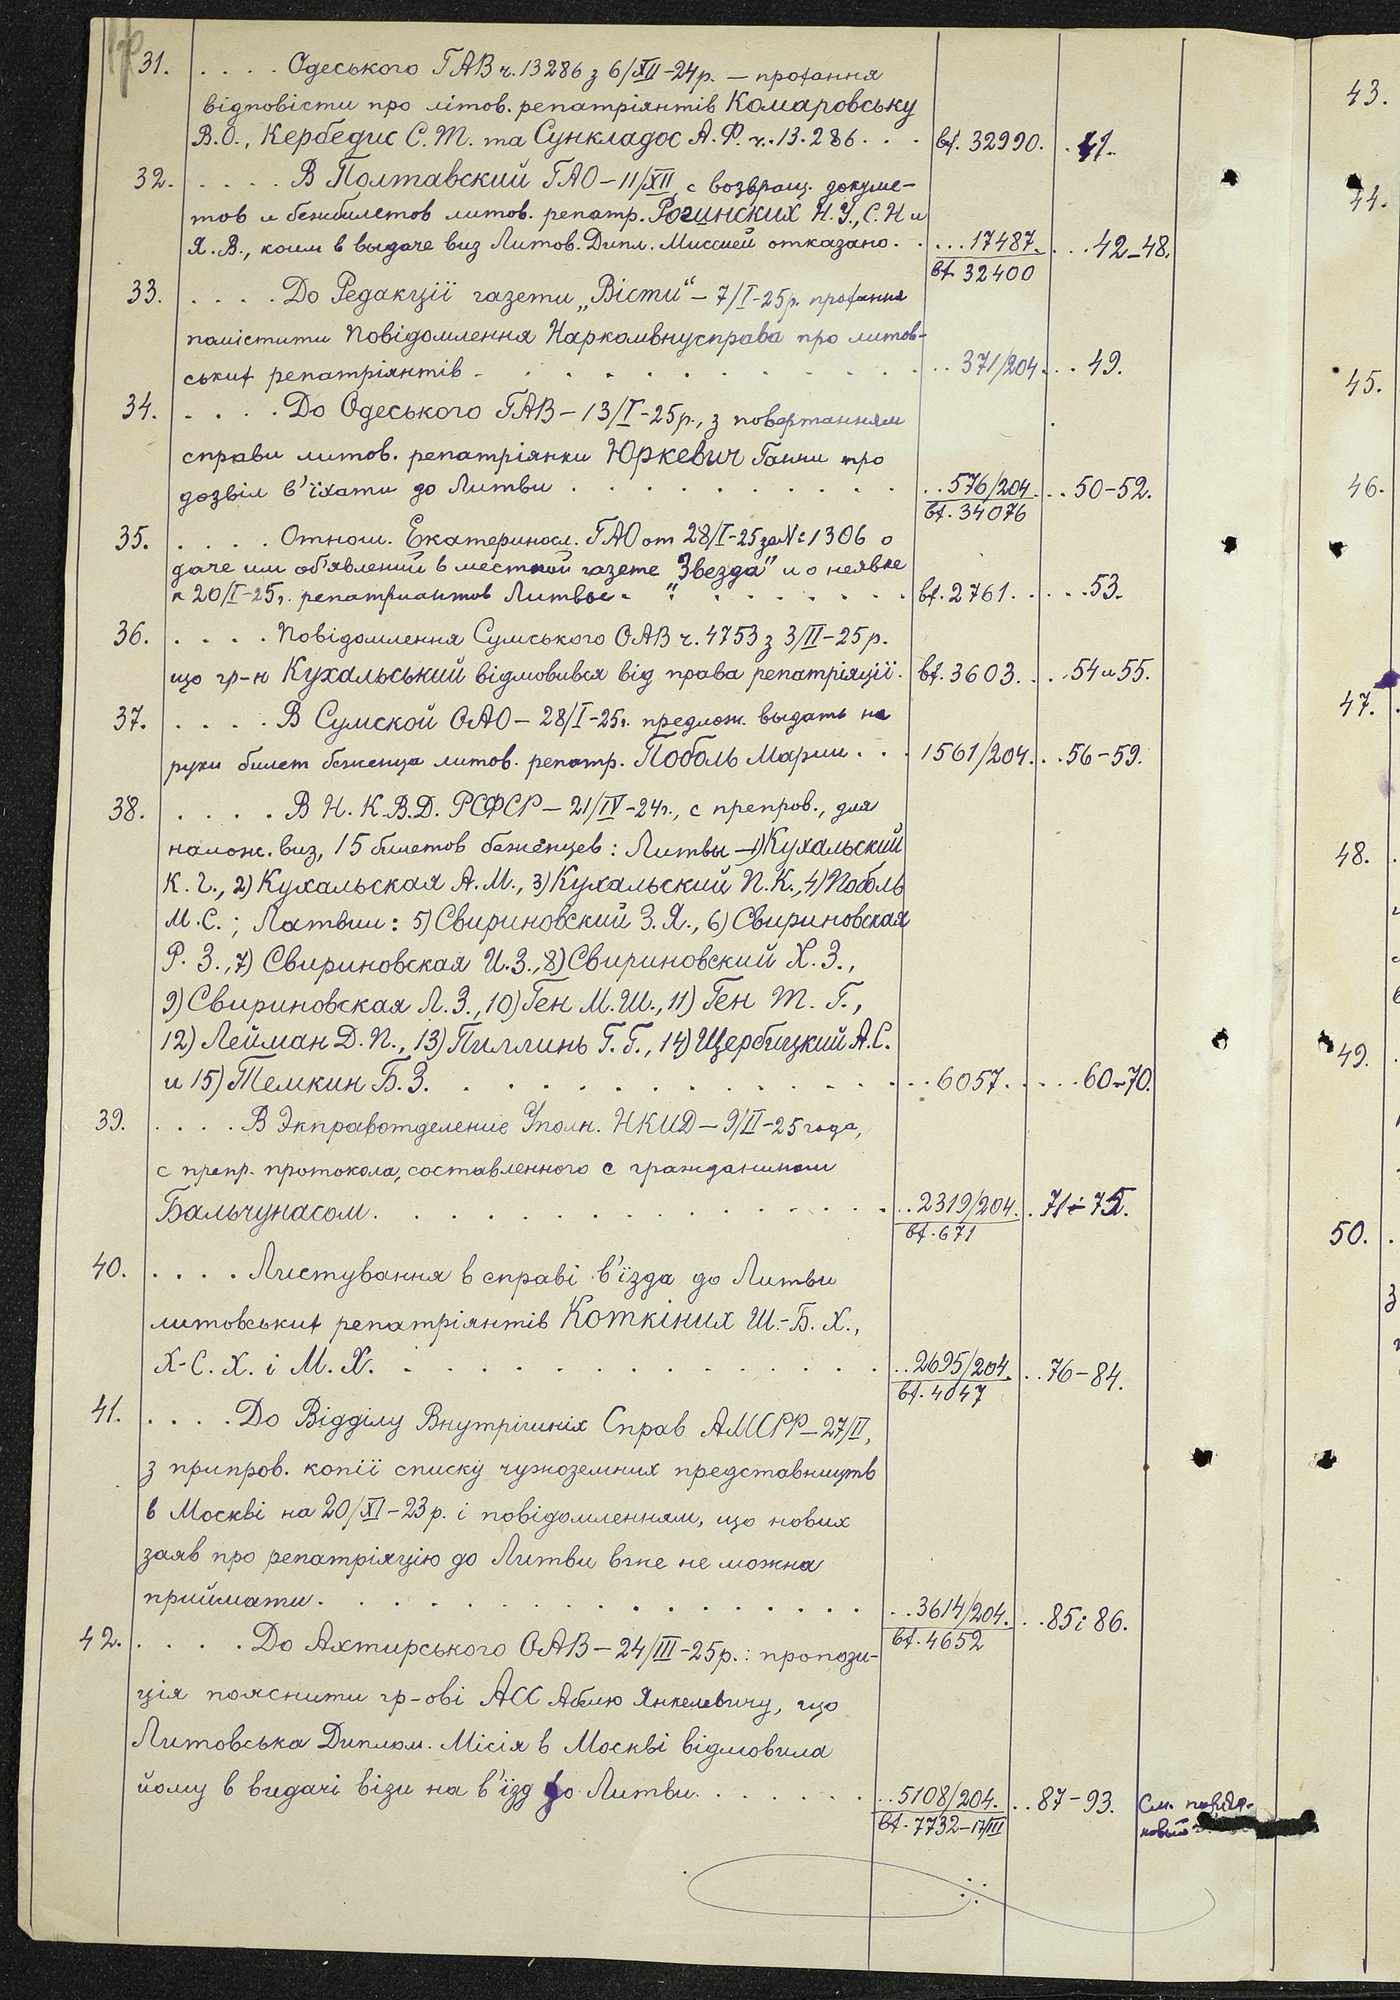 31. . . . . Одеського ГАВ ч. 13286 з 6/XII-24р. — прохання
відповісти про літов. репатріянтів Комаровську
В.О., Кербедис С.Т. та Сункладос А.Ф. ч. 13.286. . . вх. 32990. . 41.
32. . . . . В Полтавский ГАО — 11/XII с возвращ. докуме-
тов и бежбилетов литов. репатр. Рогинских Н.У., С.Н и
Я.В., коим в выдаче виз Литов. Дипл. Миссией отказано. . . . . 17487. . . . 42-48.
вх. 32400
33. . . . . До Редакції газети „Вісти“ — 7/I-25р. прохання
помістити повідомлення Наркомвнусправа про литов-
ських репатріянтів . . . 371/204 . . . 49.
34. . . . . До Одеського ГАВ — 13/I-25р., з повертанням
справи литов. репатріянки Юркевич Ганни про
дозвіл в'їхати до Литви . . . 576/204. . . 50-52.
вх. 34076
35. . . . . Отнош. Екатериносл. ГАО от 28/I-25 за № 1306 о
даче им об'явлений в местной газете "Звезда" и о неявке
к 20/I-25г. репатриантов Литвы . . . вх. 2761. . . . . 53.
36. . . . . Повідомлення Сумського ОАВ ч. 4753 з 3/II-25р.
що гр-н Кухальський відмовився від права репатріяції. вх. 3603. . . . 54 и 55.
37. . . . . В Сумской ОАО — 28/I-25г. предлож. выдать на
руки билет беженца литов. репатр. Поболь Марии. . . 1561/204. . . 56-59.
38. . . . . В Н.К.В.Д. РСФСР — 21/IV-24г., с препров., для
налож. виз, 15 билетов беженцев: Литвы — 1) Кухальский
К.Г., 2) Кухальская А.М., 3) Кухальский П.К., 4) Поболь
М.С.; Латвии: 5) Свириновский З.Я., 6) Свириновская
Р.З., 7) Свириновская И.З., 8) Свириновский Х.З.,
9) Свириновская Л.З., 10) Ген М.Ш., 11) Ген Т.Г.,
12) Лейман Д.П., 13) Пиллинь Г.Г., 14) Щербицкий А.С.
и 15) Темкин Б.З. . . . 6057. . . . . 60-70.
39. . . . . В Экправотделение Уполн. НКИД — 9/II-25 года,
с препр. протокола, составленного с гражданином
Бальчунасом. . . . 2319/204. . 71÷75.
вх. 671
40. . . . . Листування в справі в'їзда до Литви
литовських репатріянтів Коткіних Ш.-Б. Х.,
Х-С. Х. і М. Х. . . . 2695/204. . . 76-84.
вх. 4047
41. . . . . До Відділу Внутрішніх Справ АМСРР — 27/II,
з припров. копії списку чужоземних представництв
в Москві на 20/XI-23р. і повідомленням, що нових
заяв про репатріяцію до Литви вже не можна
приймати. . . . 3614/204. . . 85 і 86.
вх. 4652
42. . . . . До Ахтирського ОАВ — 24/III-25р.: пропози-
ція пояснити гр-ові АСС Аблю Янкелевичу, що
Литовська Диплом. Місія в Москві відмовила
йому в видачі візи на в'їзд до Литви. . . . 5108/204. . . 87-93. См. поряд-
вх. 7732-17/III ковый
43.
44.
45.
46.
47.
48.
49.
50.